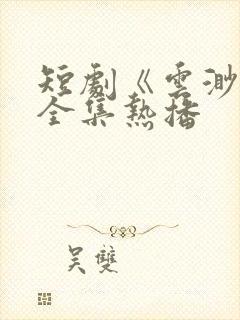 短劇《雲渺
全集熱播
吴雙